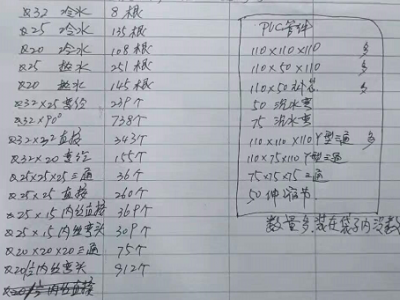 φ32 冷水 8根
φ25 冷水 135根
φ20 冷水 108根
φ25 热水 251根
φ20 热水 145根
φ32×25变径 239个
φ32×90° 738个
φ32×32直接 343个
φ32×20变径 155个
φ25×25×25三通 36个
φ25×25直接 260个
φ25×15内丝直接 369个
φ25×15内丝弯头 309个
φ20×20×20三通 75个
内丝弯头 912个
PVC管件
110×110×110 多
110×50×110 多
110×50 多
50 沉水弯
75 沉水弯
110×110×110Y型三通 多
110×75×110Y型三通
75×75×75三通
50伸缩节
数量多,装在袋子内没数